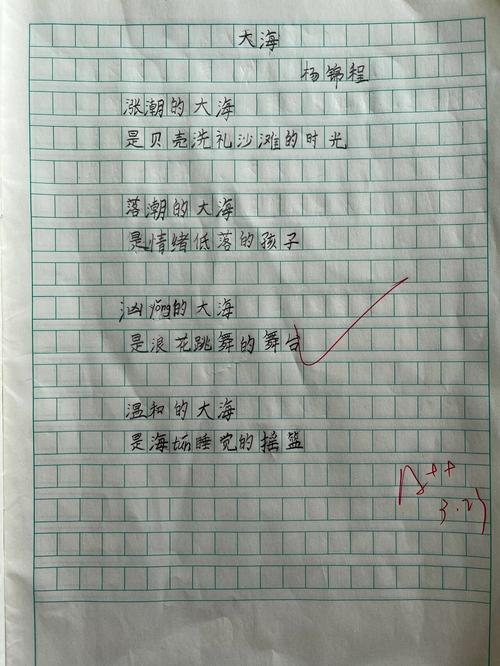 大海
杨锦程
涨潮的大海
是贝壳洗礼沙滩的时光
落潮的大海
是情绪低落的孩子
汹yǒng的大海
是浪花跳舞的舞台
温和的大海
是海tún睡觉的摇篮
A++
3.27